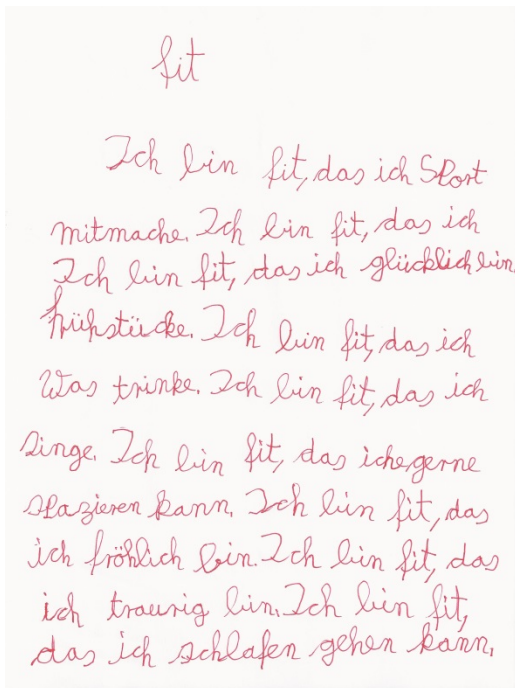 fit
Ich bin fit, das ich Sport
mitmache. Ich bin fit, das ich
Ich bin fit, das ich glücklich bin.
frühstücke. Ich bin fit, das ich
Was trinke. Ich bin fit, das ich
singe. Ich bin fit, das ich gerne
spazieren kann. Ich bin fit, das
ich fröhlich bin. Ich bin fit, das
ich traurig bin. Ich bin fit,
das ich schlafen gehen kann.